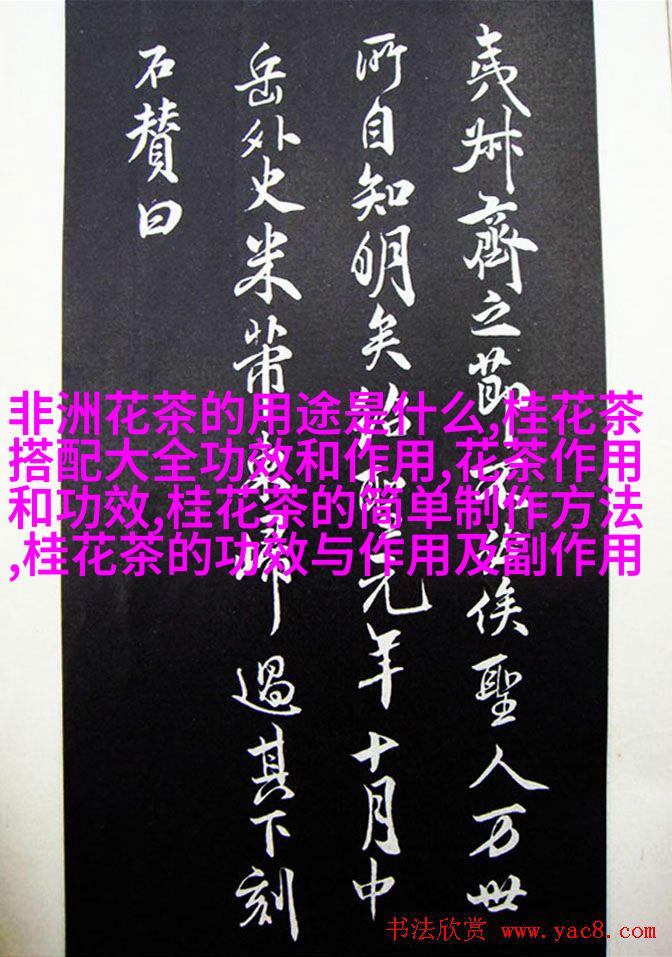 夷叔齊之節不俟聖人万世
所自知明矣紹聖元年十月中
岳外史米芾東歸過其下刻
石賛曰
非洲花茶的用途是什么,桂花茶
搭配大全功效和作用,花茶作用
和功效,桂花茶的简单制作方法
,桂花茶的功效与作用及副作用
书法欣赏 www.yac8.com